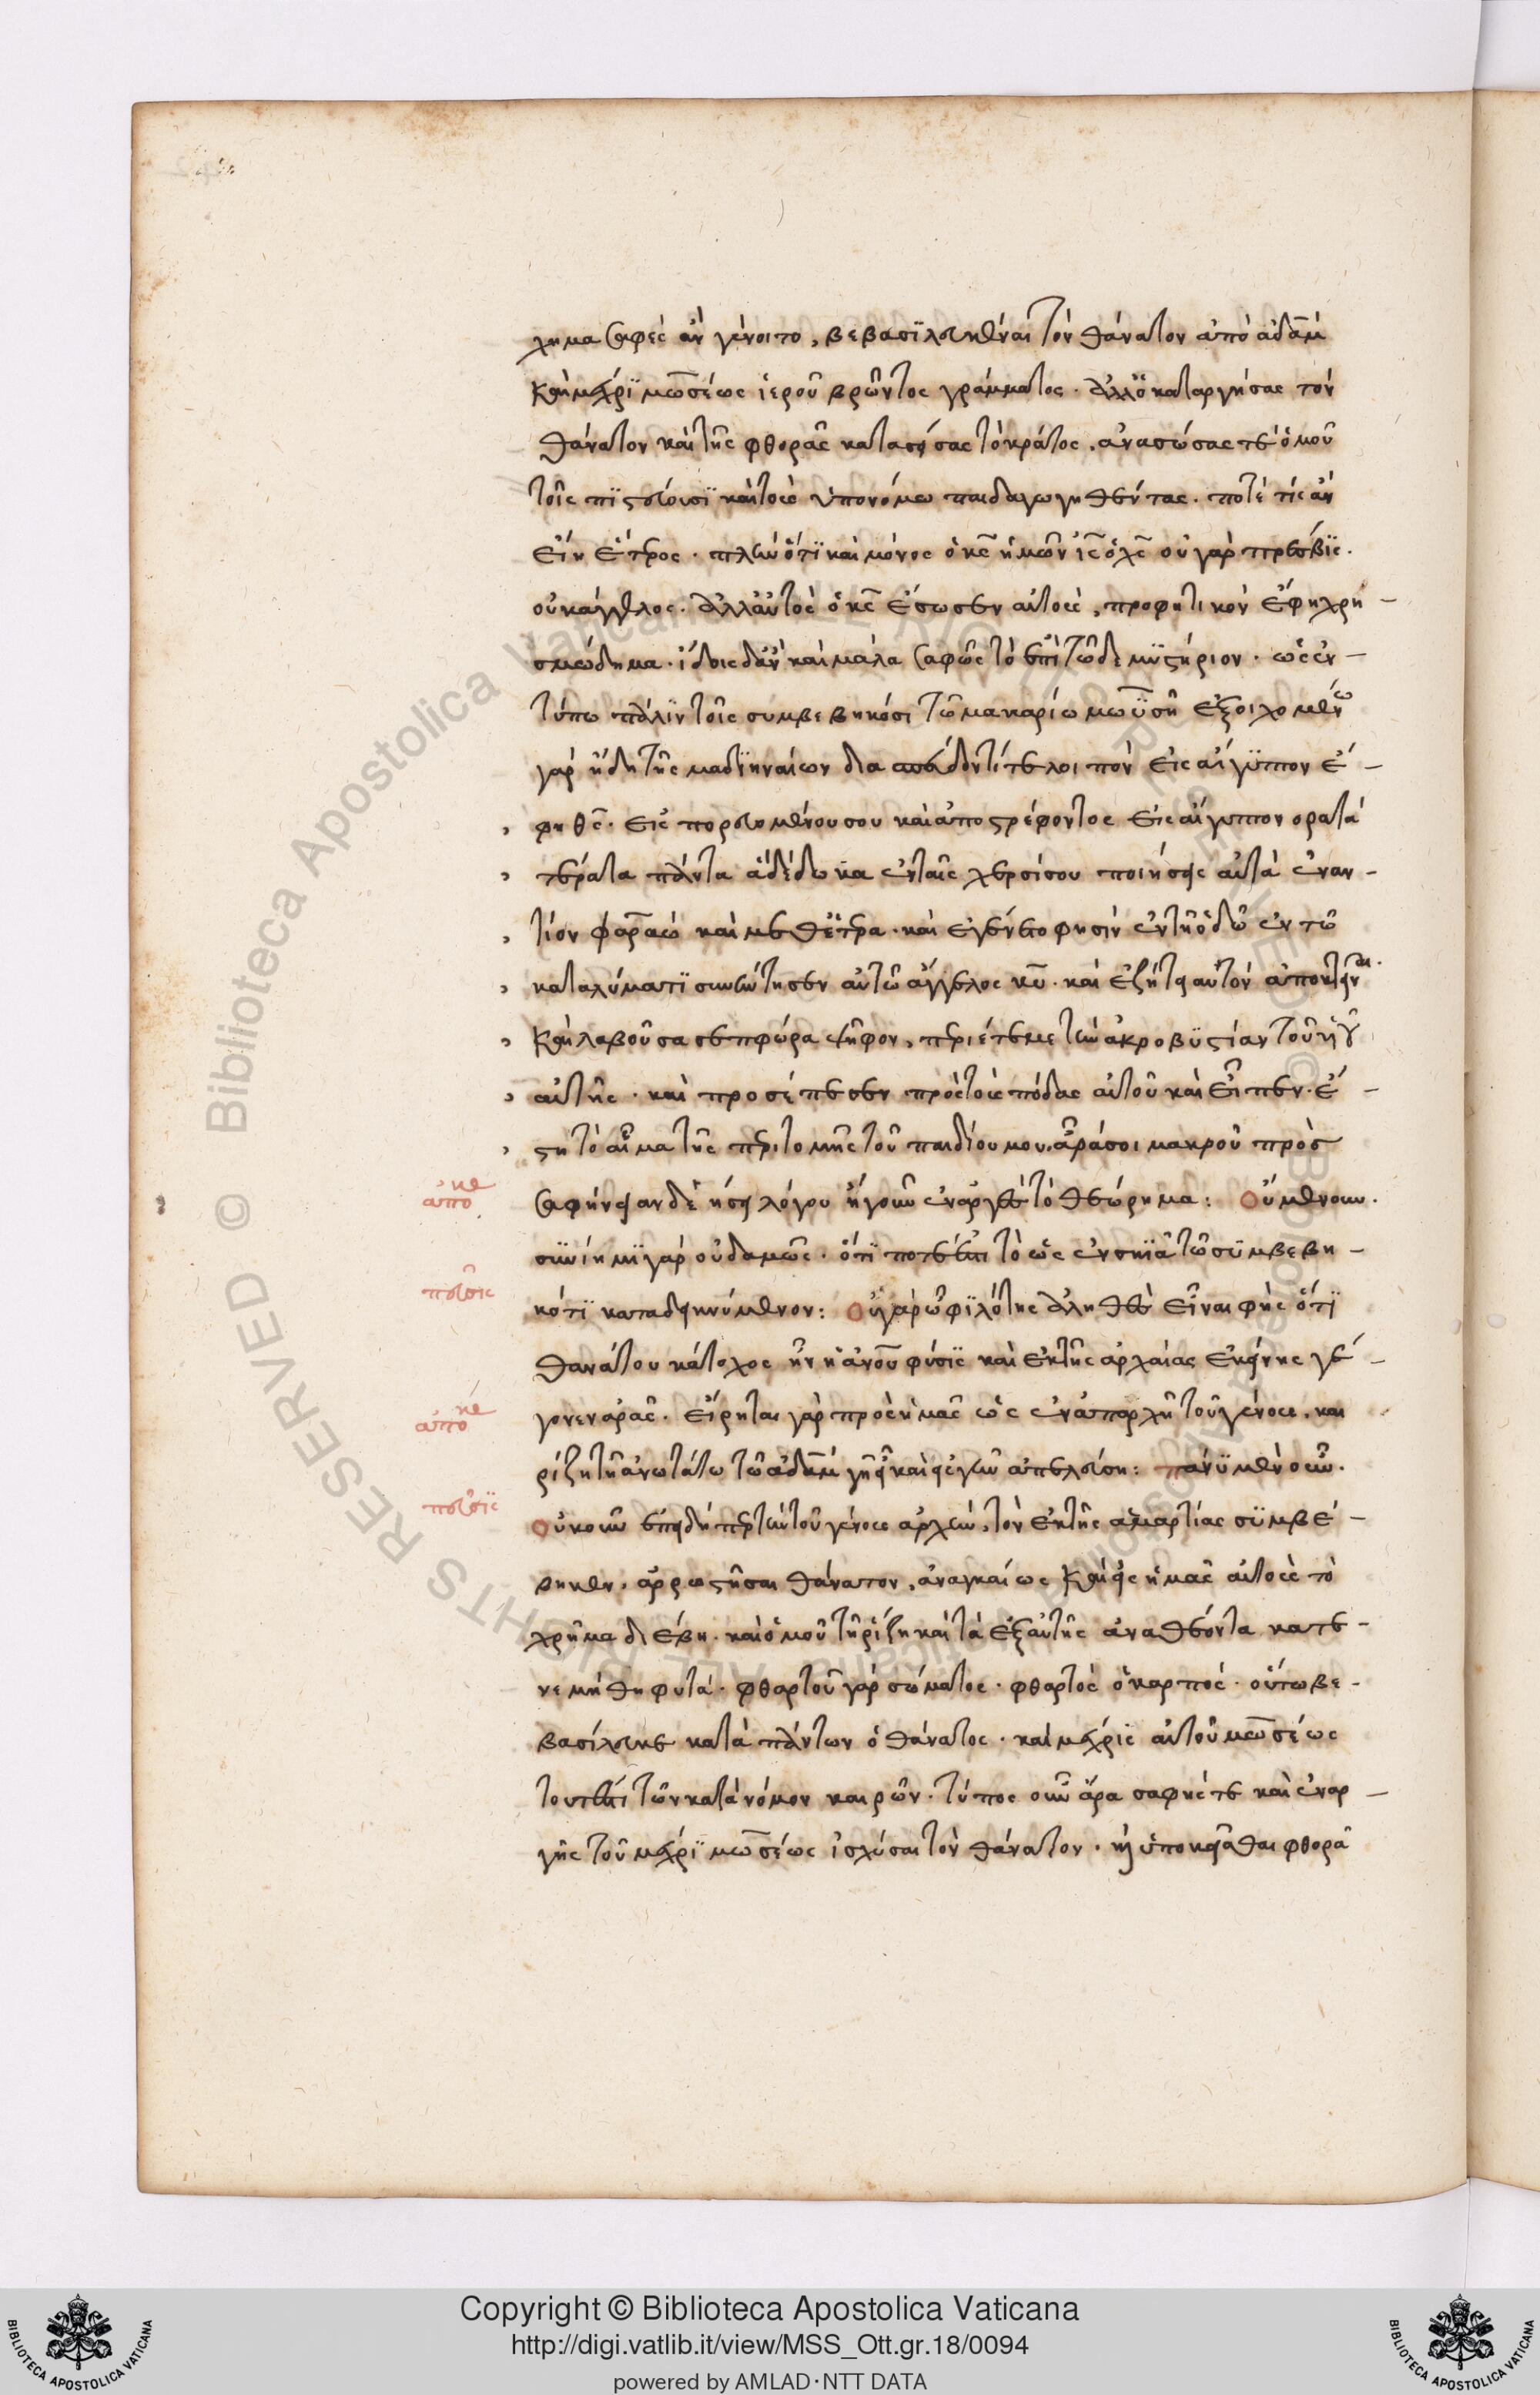 χημα σαφὲς ἂν γένοιτο, βεβασϊλευκέναι τὸν θάνατον ἀπὸ ἀδὰμ
καὶ μέχρϊ μωσέως ἱεροῦ βρῶντος γράμματος. ἀλλ' ὁ καταργήσας τὸν
θάνατον καὶ τῆς φθορᾶς κατασείσας τὸ κράτος, ἀνασώσας τὲ ὁμοῦ
τοῖς πϊστεύουσϊ καὶ τοὺς ὑπονόμω παιδαγωγηθέντας. ποτὲ τίς ἂν
εἴη ἕτερος. πλὴν ὅτϊ καὶ μόνος ὁ κς ἡμῶν ις ὁ χς οὐ γὰρ πρέσβϊς.
οὐκ ἄγγελος. ἀλλ' αὐτὸς ὁ κς ἔσωσεν αὐτοὺς, προφητικὸν ἔφη χρη -
σμώδημα. ἴδοις δ' ἂν καὶ μάλα σαφῶς τὸ ἐπὶ τῶδε μϋστήριον. ὡς ἐν -
τύπω πάλϊν τοῖς συμβεβηκόσι τῶ μακαρίω μωϋσῆ ἐξοιχομένω
γὰρ ἤδη τῆς μαδϊηναίων δια λοιπὸν εἰς αἴγϋπτον ἐ -
› ρηθς. εἰς πορευομένου σου καὶ ἀποστρέφοντος εἰς αἴγυπτον ορα τὰ
› τέρατα πάντα ἃ δέδωκα ἐν ταῖς χερσί σου ποιήσεις αὐτὰ ἐναν -
› τίον φαραὼ καὶ μεθ' ἕτερα. καὶ ἐγένετο φησὶν ἐν τῆ ὁδῶ ἐν τῶ
› καταλύματϊ συνήντησεν αὐτῶ ἄγγελος κυ. καὶ ἐζήτει αὐτὸν ἀποκτεῖναι.
› καὶ λαβοῦσα σεπφώρα ψῆφον, περιέτεμε τὴν ἀκροβϋστίαν τοῦ ὑιοῦ
› αὐτῆς. καὶ προσέπεσεν πρὸς τοὺς πόδας αὐτοῦ καὶ εἶπεν. ἔ -
› στη τὸ αἷμα τῆς περιτομῆς τοῦ παιδίου μου. ἆρά σοι μακροῦ πρὸς
ἀποκ σαφήνειαν δεήσει λόγου ἤγουν ἐναργὲς τὸ θεώρημα: Οὐμενοῦν.
σϋνίημϊ γὰρ οὐδαμῶς. ὅτϊ ποτέ ἐστι τὸ ὡς ἐν σκϊᾶ τῶ σϋμβεβη -
πεῦσις κότϊ καταδεικνύμενον: Οὐ γὰρ ὦ φϊλότης ἀληθὲς εἶναι φὴς ὅτϊ
θανάτου κάτοχος ἦν ἡ ἀνου φύσϊς καὶ ἐκ τῆς ἀρχαίας ἐκείνης γέ -
ἀποκ γονεν ἀρᾶς. εἴρηται γὰρ πρὸς ἡμᾶς ὡς ἐν ἀπαρχῆ τοῦ γένους, και
ρίζη τῆ ἀνωτάτω τῶ ἀδὰμ γῆ εἶ καὶ εἰς γῆν ἀπελεύση: πάνϋ μὲν οὖν.
πεῦσϊς Οὐκοῦν ἐπειδὴ περ τὴν τοῦ γένους ἀρχὴν, τὸν ἐκ τῆς ἁμαρτίας σϋμβέ -
βηκεν, ἀρρωστῆσαι θάνατον, ἀναγκαίως καὶ εἰς ἡμᾶς αὐτοὺς τὸ
χρῆμα διέβη. καὶ ὁμοῦ τῆ ρίζη καὶ τὰ ἐξ αὐτῆς ἀναθέοντα κατε -
νεμήθη φυτά. φθαρτοῦ γὰρ σώματος. φθαρτὸς ὁ καρπός. οὕτω βε -
βασίλευκε κατὰ πάντων ὁ θάνατος. καὶ μέχρϊς αὐτοῦ μωσέως
τουτέστι τῶν κατὰ νόμον καιρῶν. τύπος οὖν ἄρα σαφής τε καὶ ἐναρ -
γὴς τοῦ μέχρϊ μωσέως ἰσχύσαι τὸν θάνατον. καὶ ὑποκεῖσθαι φθορᾶ
Copyright © Biblioteca Apostolica Vaticana
http://digi.vatlib.it/view/MSS_Ott.gr.18/0094
powered by AMLAD·NTT DATA